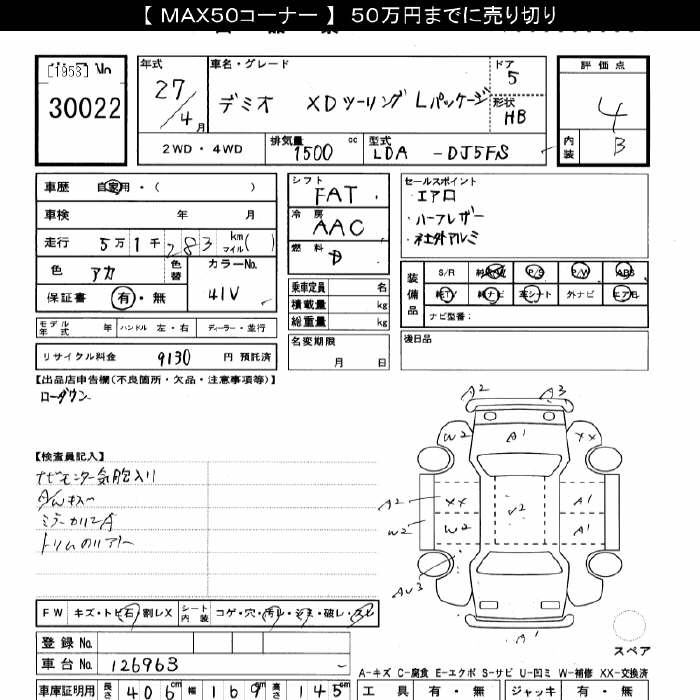 【 MAX50コーナー 】 50万円までに売り切り
[1953] No
30022
年式
27
4 月
車名・グレード
デミオ XDツーリング Lパッケージ
ドア
5
形状
HB
評価点
4
内装
B
2WD・4WD
排気量
1500 cc
型式
LDA -DJ5FS
車歴 自家用・( )
車検 年 月
走行 5万1千283 km マイル ( )
色 アカ 色替
カラーNo.
41V
保証書 有・無
シフト
FAT
冷房
AAC
燃料
D
乗車定員 名
積載量 kg
総重量 kg
名変期限
月 日
セールスポイント
・エアロ
・ハーフレザー
・社外アルミ
装備品
S/R P/S P/W ABS
純TV 純ナビ 革シート 外ナビ エアB
ナビ型番:
後日品
モデル年式 年 ハンドル 左・右 ディーラー・並行
リサイクル料金 9130 円 預託済
【出品店申告欄(不良箇所・欠品・注意事項等)】
ローダウン
【検査員記入】
ナビモニター気胞入り
ミラーカバーA
FW キズ・トビ石・割レX シート内装 コゲ・穴・汚レ・シミ・破レ・スレ
登録 No.
車台 No. 126963
車庫証明用 長さ 406cm 幅 169cm 高さ 145cm
A2 A3
W2 A1 XX
A2 XX A1
W2 W2 V2 A1
AU3
スペア
A-キズ C-腐食 E-エクボ S-サビ U-凹ミ W-補修 XX-交換済
工具 有・無 ジャッキ 有・無